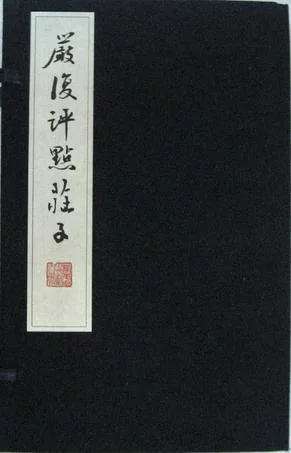 嚴復评點莊子